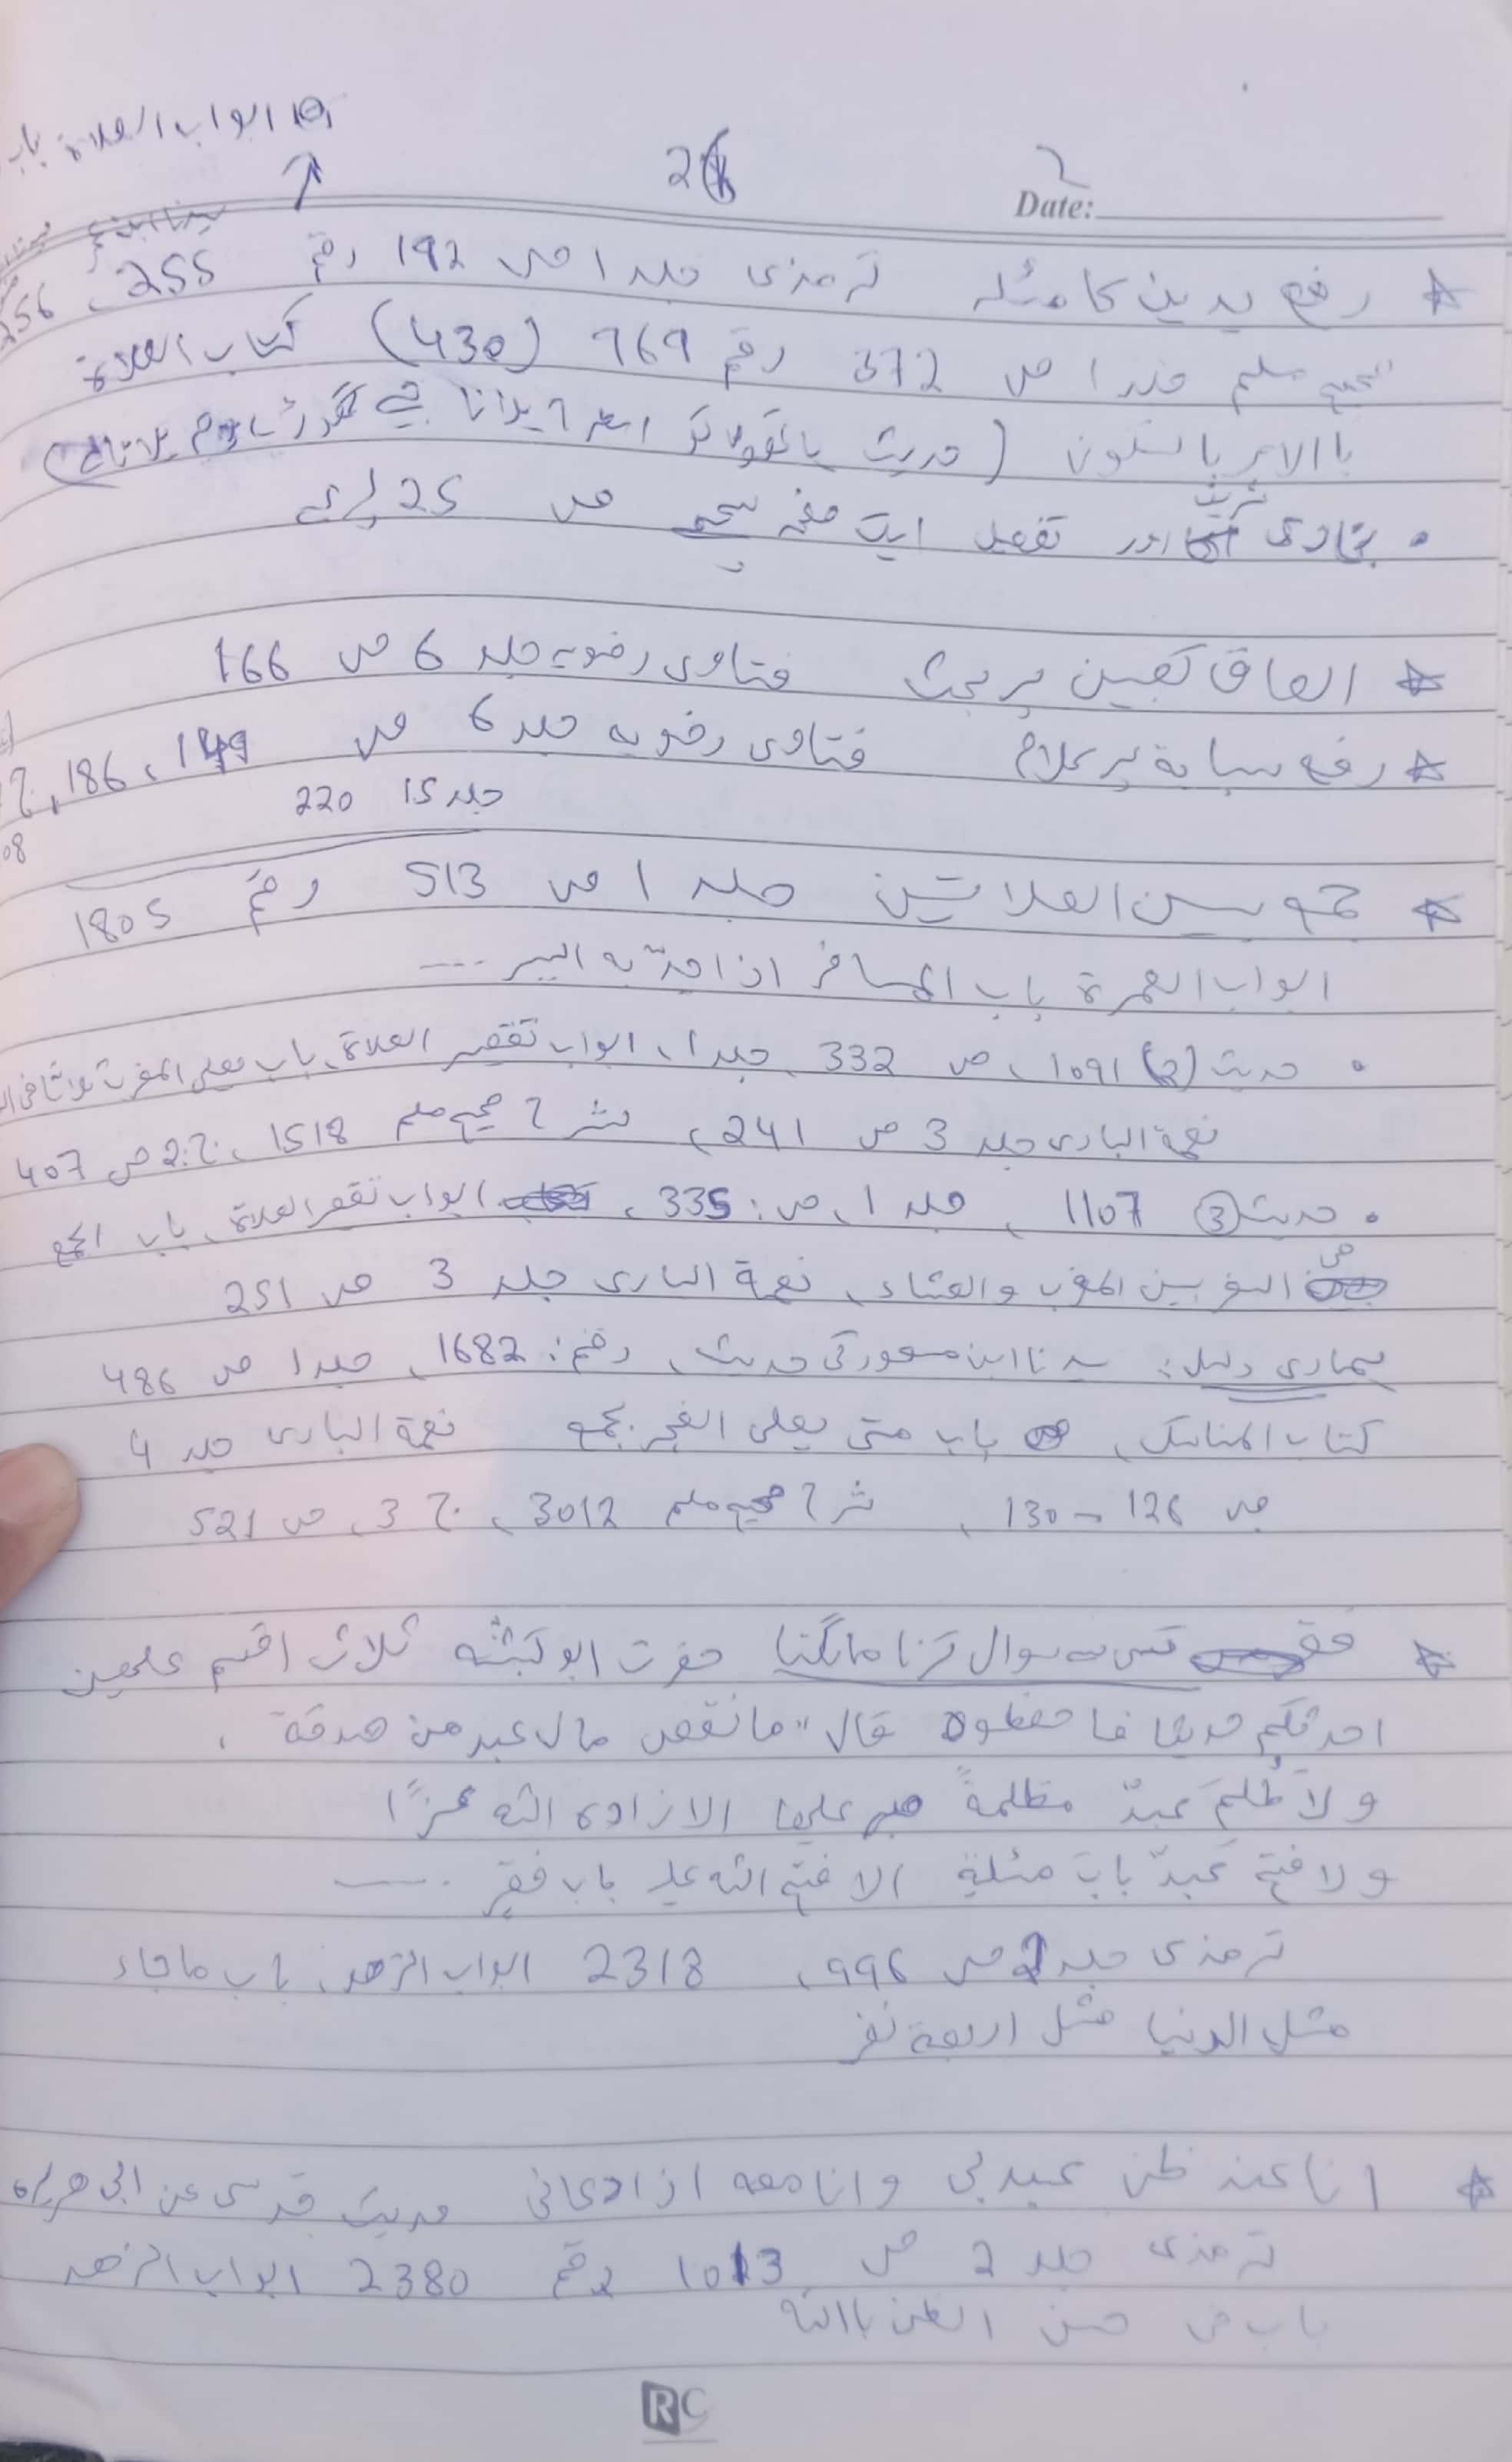 ابواب الصلاۃ باب
2
Date:
رفع یدین کا مسئلہ ترمذی جلد 1 ص 192 رقم 255، 256
صحیح مسلم جلد 1 ص 372 رقم 969 (430) کتاب الصلاۃ
باالامر بالسکون (حدیث
بخاری شریف اور تفصیل ایک صفحہ ص 25 پر ہے
الصاق کعبین پر بحث فتاوی رضویہ جلد 6 ص 166
رفع سبابۃ پر کلام فتاوی رضویہ جلد 6 ص 149، 186،
جلد 15 220
جمع بین الصلاتین جلد 1 ص 513 رقم 1805
ابواب العمرۃ باب المسافر اذا جدّ بہ السیر ....
حدیث (2) 1091، ص 332، جلد 1، ابواب تقصیر الصلاۃ، باب یصلی المغرب ثلاثا فی
نعمۃ الباری جلد 3 ص 241، شرح صحیح مسلم 1518، ج:2 ص 407
حدیث (3) 1107، جلد 1، ص: 335، ابواب تقصیر الصلاۃ، باب الجمع
فی السفر بین المغرب والعشاء، نعمۃ الباری جلد 3 ص 251
ہماری دلیل: سیدنا ابن مسعود کی حدیث، رقم: 1682، جلد 1 ص 486
کتاب المناسک، باب متی یصلی الفجر بجمع نعمۃ الباری جلد 4
ص 126 - 130، شرح صحیح مسلم 3012، ج 3، ص 521
فقر کسی سے سوال کرنا مانگنا حضرت ابو کبشہ ثلاث اقسم علیھن
احدثکم حدیثا فاحفظوہ قال "مانقص مال عبد من صدقۃ،
ولا ظُلِمَ عبدٌ مظلمۃً صبر علیھا الا زادہ اللہ عزًّا
ولا فتح عبدٌ بابَ مسئلۃٍ الا فتح اللہ علیہ باب فقر ....
ترمذی جلد 2 ص 996، 2318 ابواب الزھد، باب ماجاء
مثل الدنیا مثل اربعۃ نفر
انا عند ظن عبدی بی وانا معہ اذا دعانی حدیث قدسی عن ابی ھریرہ
ترمذی جلد 2 ص 1013 رقم 2380 ابواب الزھد
باب فی حسن الظن باللہ
RC